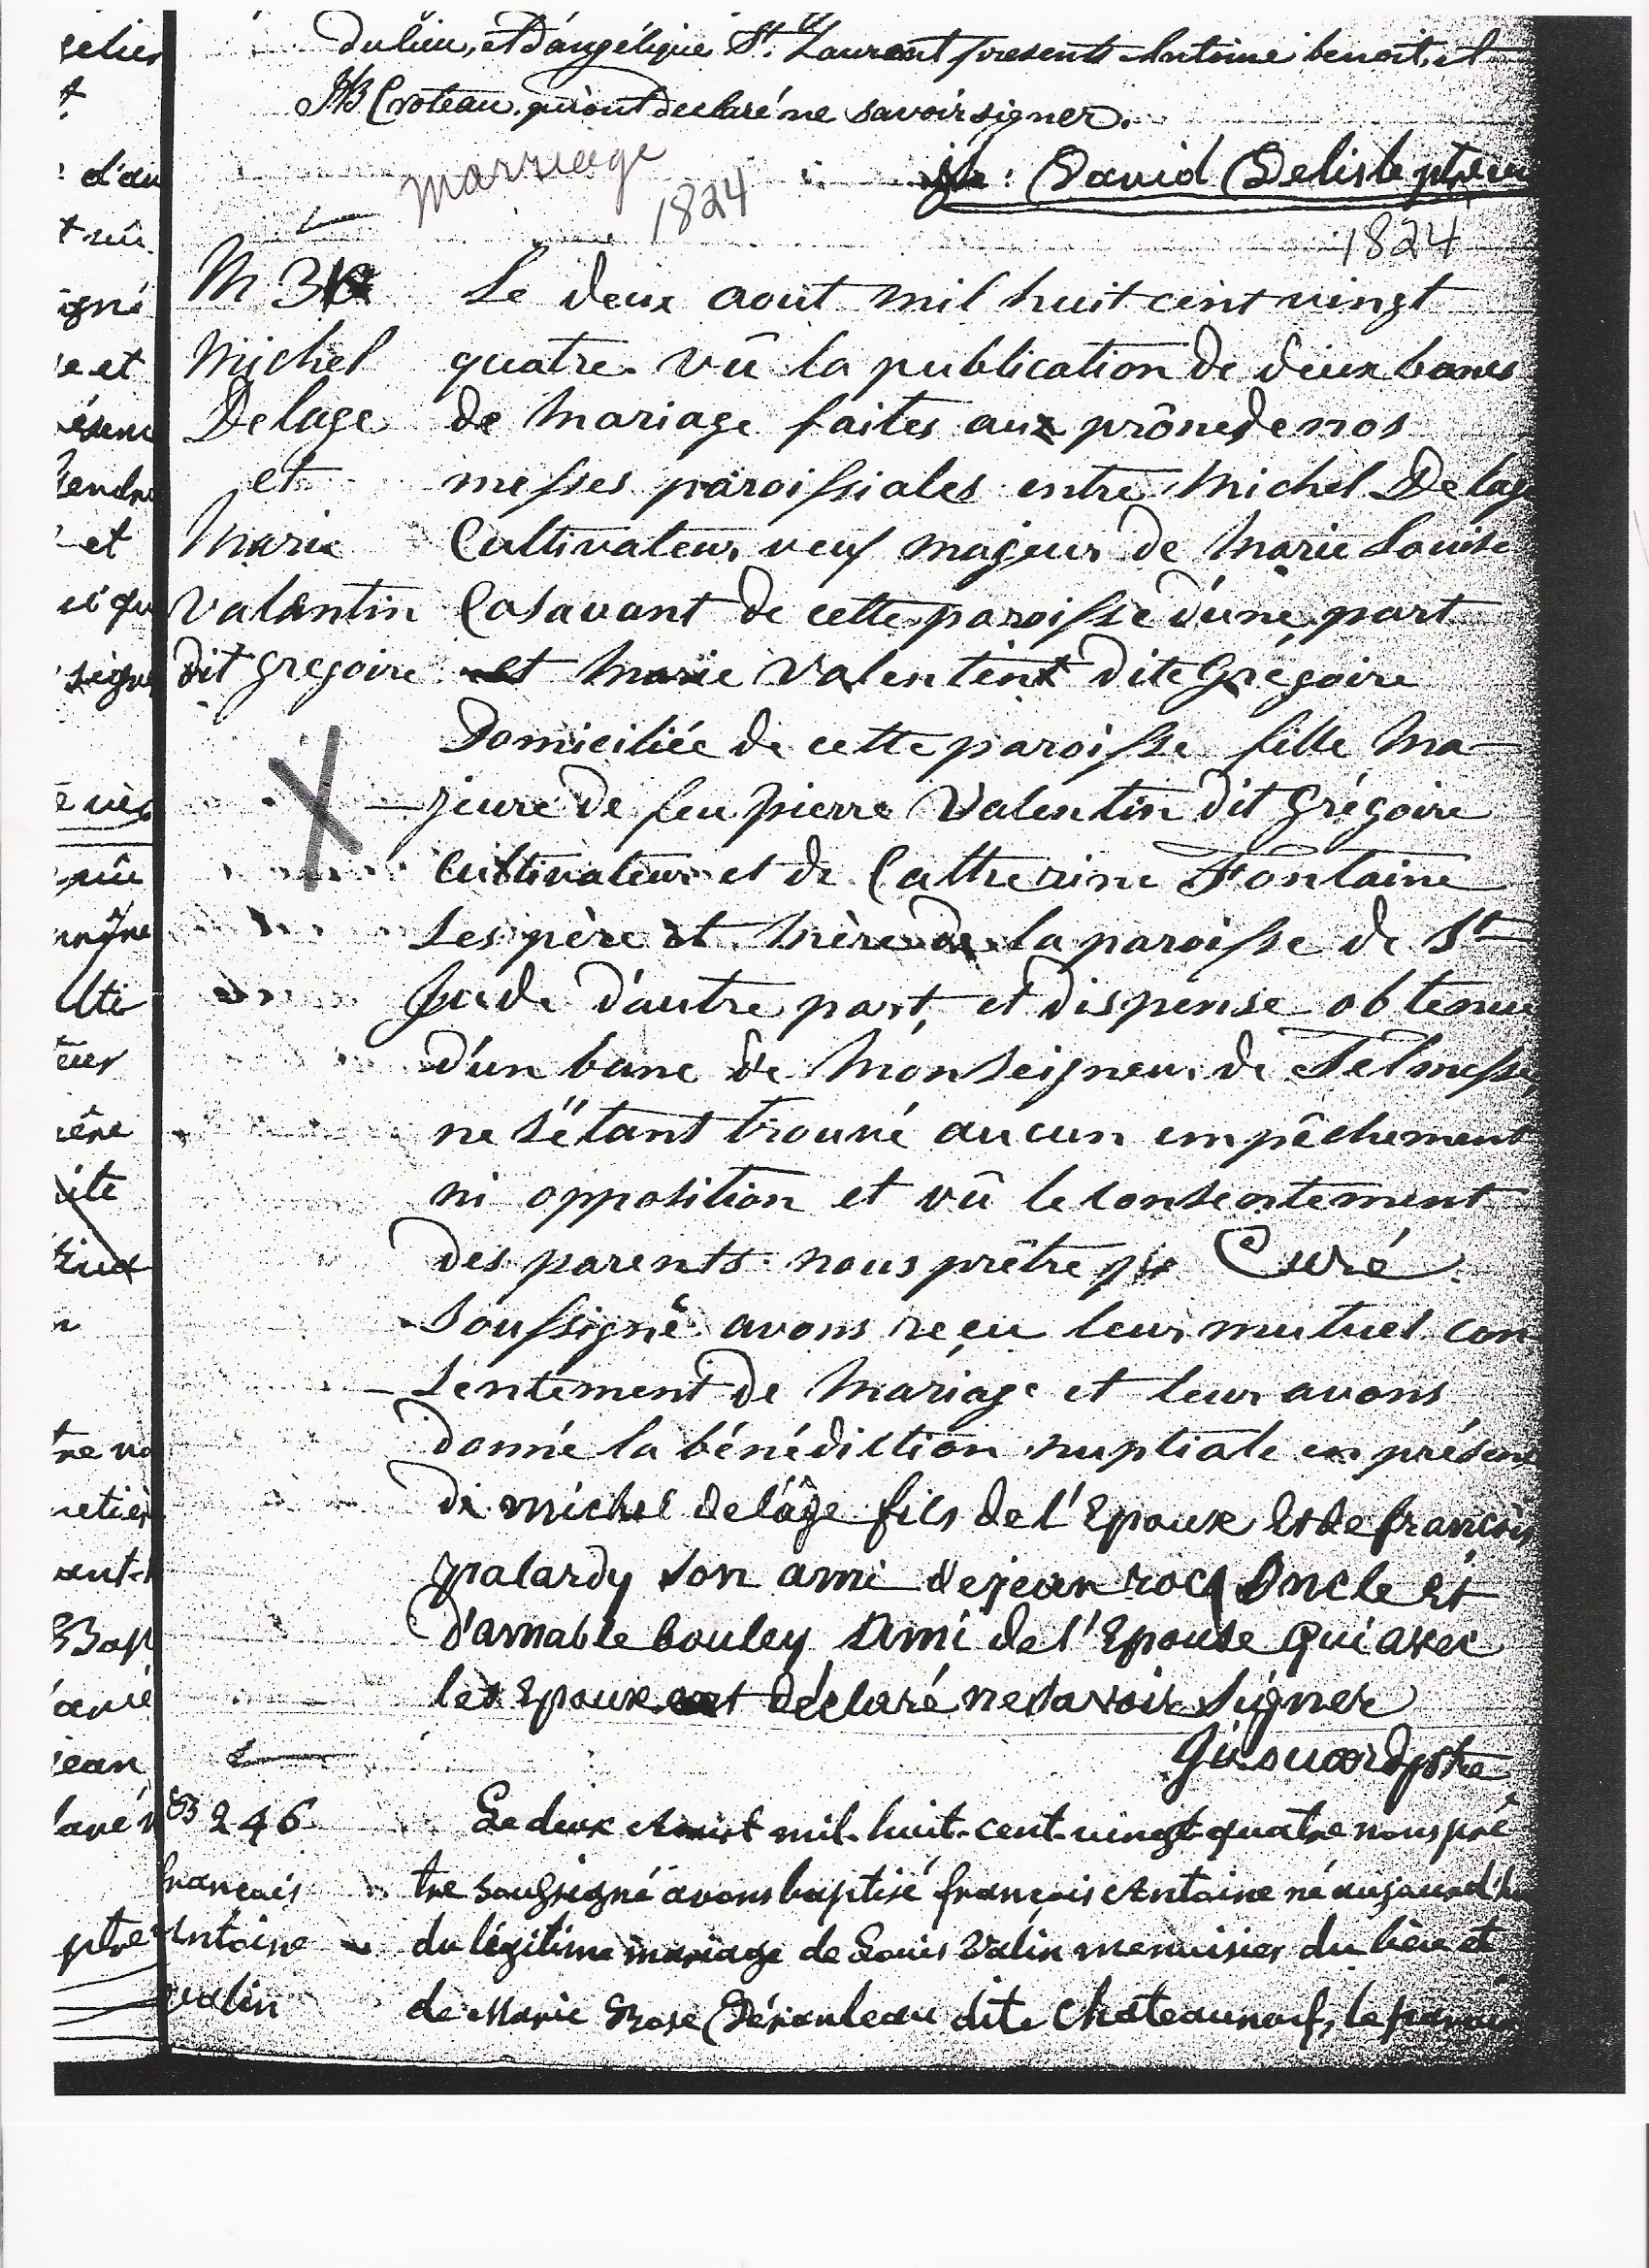 du lieu, et d'angélique St. Laurent presents Antoine benoit, et
JB Croteau qui ont declaré ne savoir signer.
marriage
1824
David Delisle ptre
1824
M 3
Le deux aout mil huit cent vingt
Michel
quatre vû la publication de deux bancs
Delage
de mariage faites aux prônes de nos
et
messes paroissiales entre Michel Delage
Marie
Cultivateur veuf majeur de Marie Louise
Valentin
Casavant de cette paroisse d'une part
dit gregoire
et Marie Valentin dite Grégoire
Domiciliée de cette paroisse fille ma-
X
jeure de feu pierre Valentin dit Grégoire
Cultivateur et de Catherine Fontaine
Ses père et Mère de la paroisse de St
Jude d'autre part, et dispense obtenue
d'un banc de Monseigneur de Telmesse,
ne s'étant trouvé aucun empêchement
ni opposition et vû le consentement
des parents nous prêtre Curé
Soussigné avons reçu leur mutuel con
sentement de Mariage et leur avons
donné la bénédiction nuptiale en présence
de michel delâge fils de l'Epoux Et de françois
palardy son ami de jean rocq Oncle Et
d'amable bouley Ami de l'Epouse Qui avec
les Epoux ont déclaré ne savoir Signer
Girouard ptre
B 246
Le deux Aout mil-huit-cent-vingt-quatre nous prê
français
tre soussigné avons baptisé françois Antoine né aujourd'hu
Antoine
du légitime mariage de Louis Valin menuisier du lieu et
valin
de Marie Rose Dérouleau dite Chateauneuf, le parrain